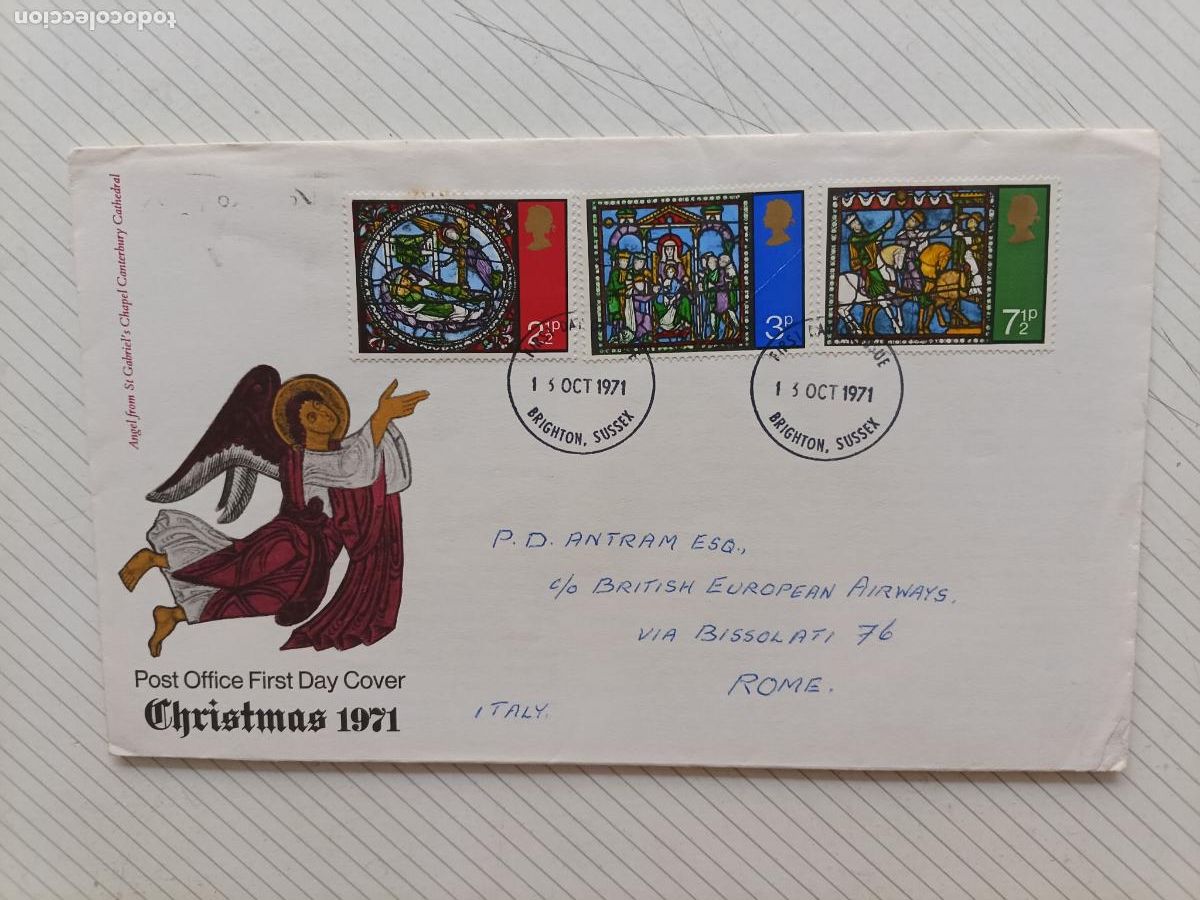 todocoleccion
Angel from St Gabriel's Chapel Canterbury Cathedral
2½p
3p
7½p
FIRST DAY OF ISSUE
13 OCT 1971
BRIGHTON, SUSSEX
FIRST DAY OF ISSUE
13 OCT 1971
BRIGHTON, SUSSEX
P. D. ANTRAM ESQ.,
c/o BRITISH EUROPEAN AIRWAYS.
VIA BISSOLATI 76
ROME.
ITALY.
Post Office First Day Cover
Christmas 1971